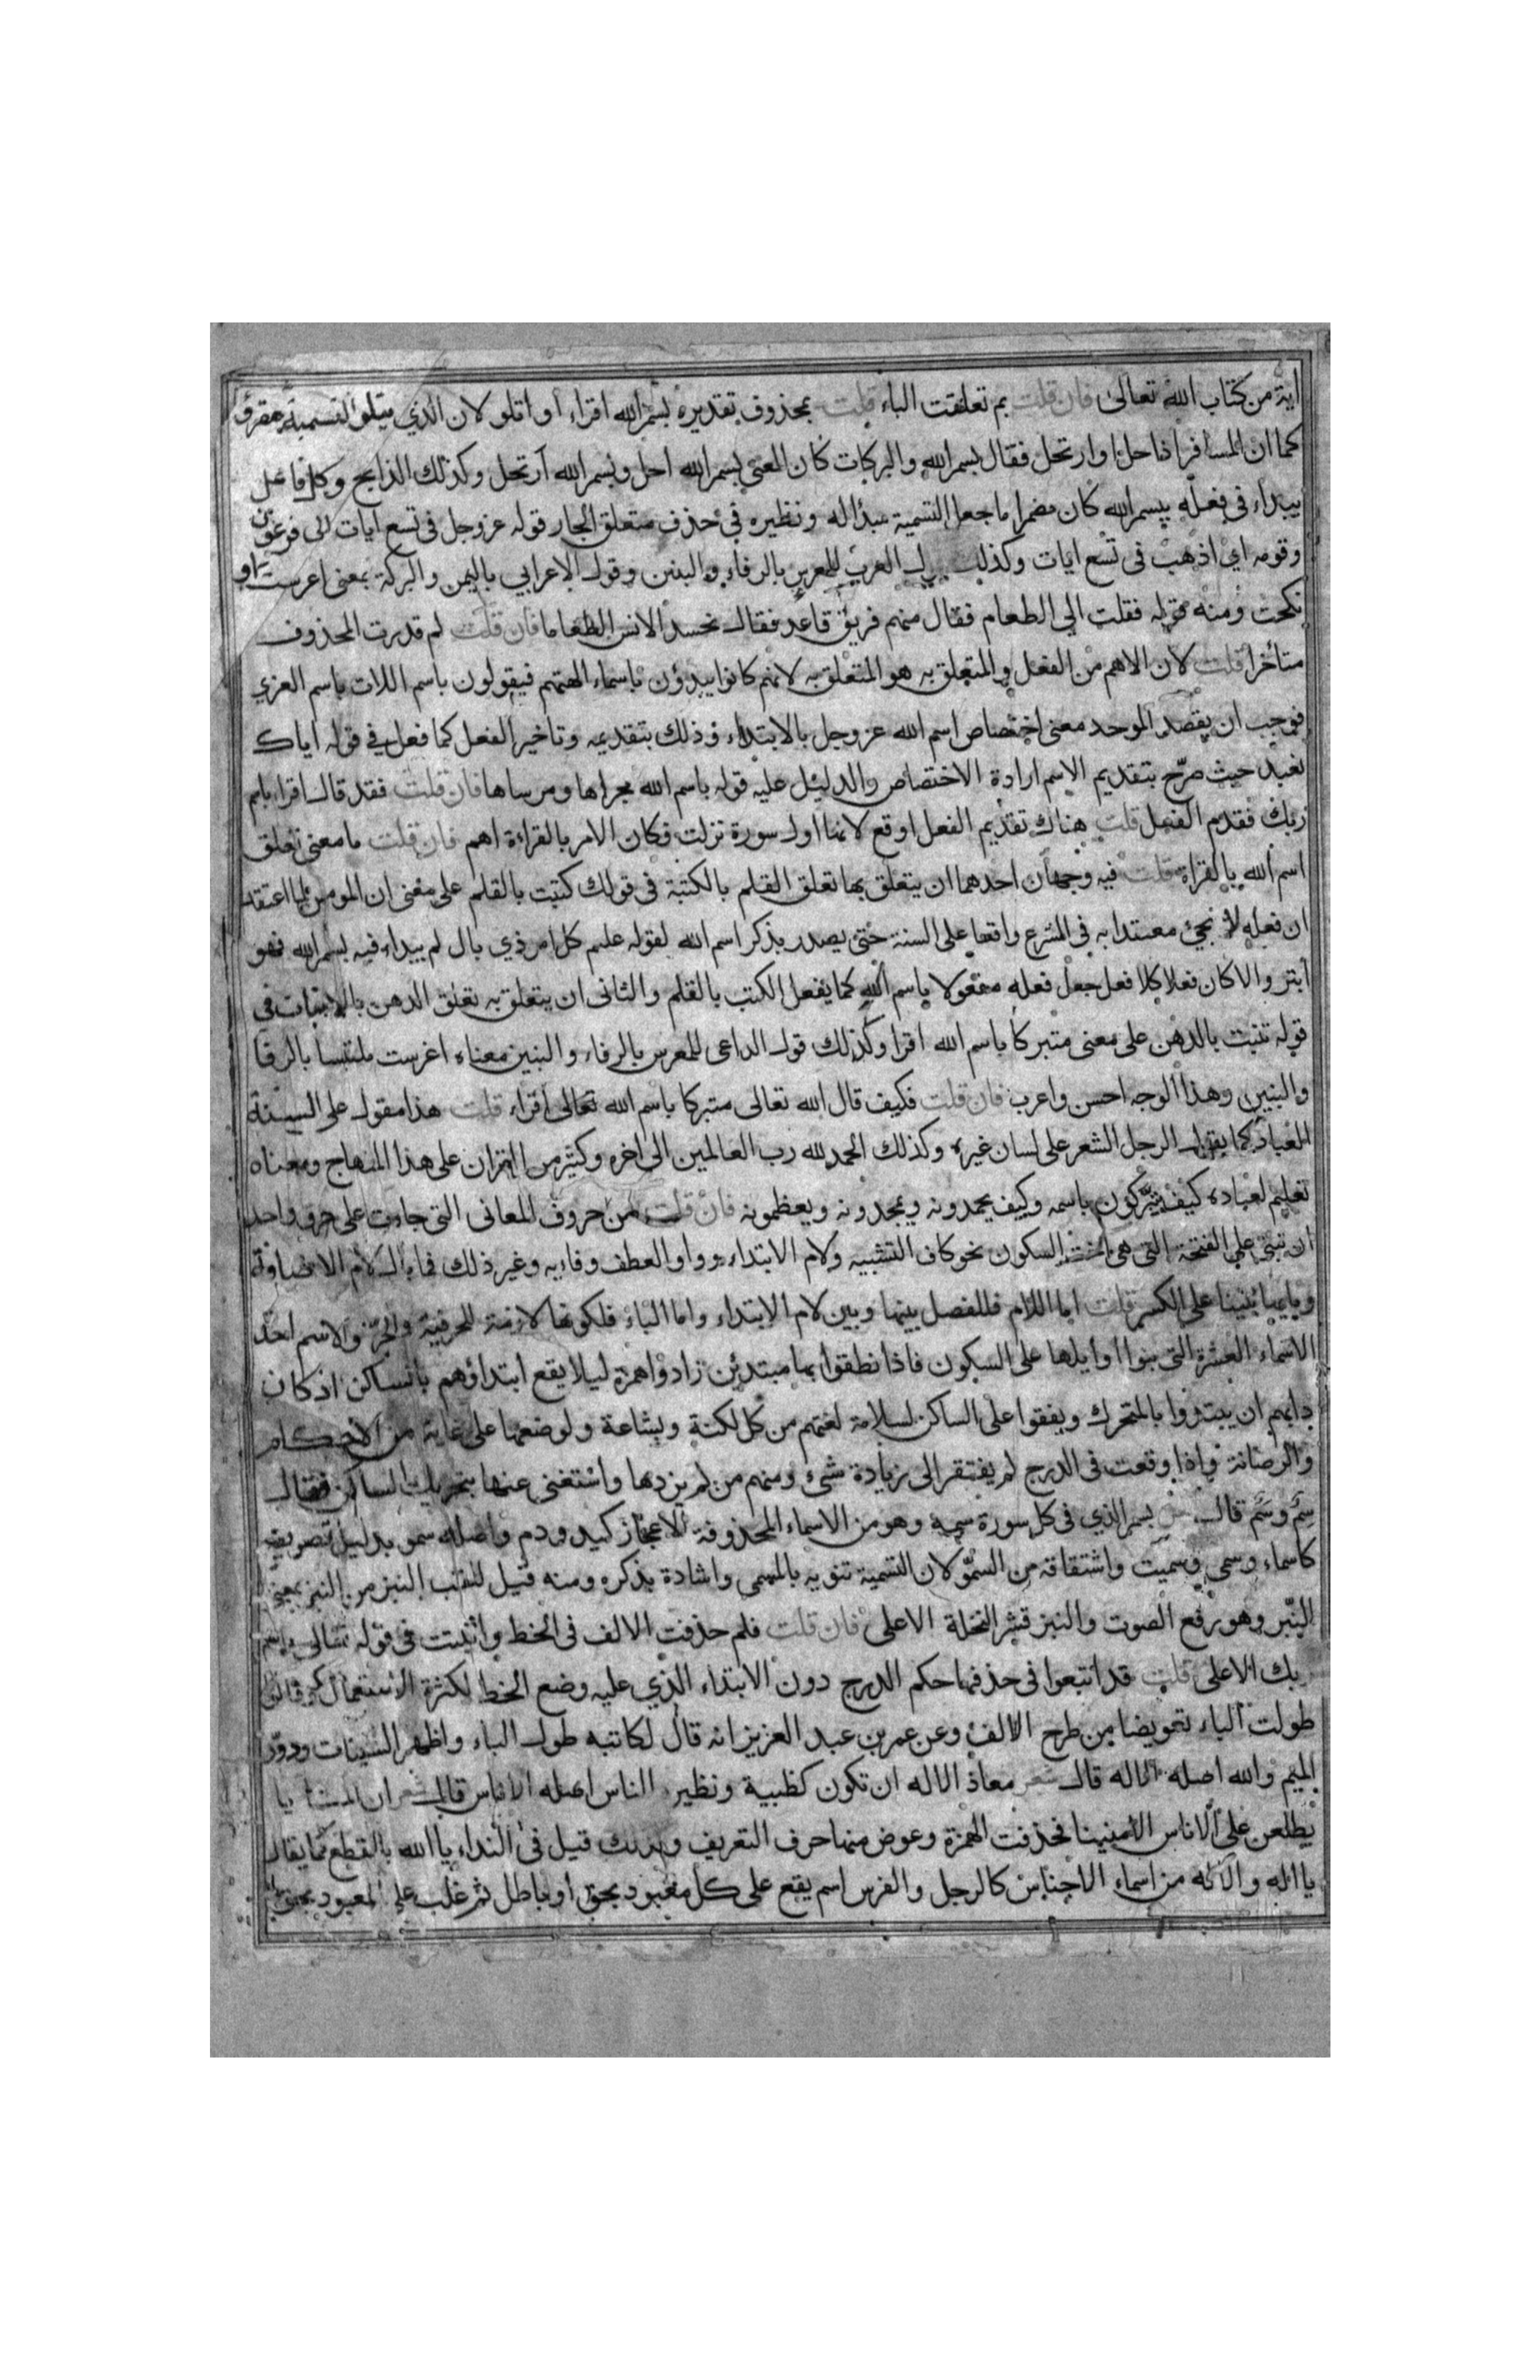 اية من كتاب الله تعالى فان قلت بم تعلقت الباء قلت بمحذوف تقديره بسم الله اقراء او اتلو لان الذي يتلو التسمية مقرؤ
كما ان المسافر اذا حل او ارتحل فقال بسم الله والبركات كان المعنى بسم الله احل وبسم الله ارتحل وكذلك الذابح وكل فاعل
يبداء في فعله ببسم الله كان مضمرا ما جعل التسمية مبدأ له ونظيره في حذف متعلق الجار قوله عز وجل في تسع ايات الى فرعون
وقومه اي اذهب في تسع ايات وكذلك العرب للمعرس بالرفاء والبنين وقول الاعرابي باليمن والبركة بمعنى اعرست او
نكحت ومنه قوله فقلت الى الطعام فقال منهم فريق قاعد فقال نحسد الانس الطعاما فان قلت لم قدرت المحذوف
متأخرا قلت لان الاهم من الفعل والمتعلق به هو المتعلق به لانهم كانوا يبدؤن باسماء الهتهم فيقولون باسم اللات باسم العزي
فوجب ان يقصد الموحد معنى اختصاص اسم الله عز وجل بالابتداء وذلك بتقديمه وتاخير الفعل كما فعل في قوله اياك
نعبد حيث صرح بتقديم الاسم ارادة الاختصاص والدليل عليه قوله باسم الله مجراها ومرساها فان قلت فقد قال اقرا باسم
ربك فقدم الفعل قلت هناك تقديم الفعل اوقع لانها اول سورة نزلت فكان الامر بالقراءة اهم فان قلت ما معنى تعلق
اسم الله بالقراة قلت فيه وجهان احدهما ان يتعلق بها تعلق القلم بالكتبة في قولك كتبت بالقلم على معنى ان المومن لما اعتقد
ان فعله لا نجئ معتدا به في الشرع واقعا على السنة حتى يصدر بذكر اسم الله لقوله عليم كل امر ذي بال لم يبداء فيه بسم الله فهو
ابتر والا كان فعلا كلا فعل جعل فعله مفعولا باسم الله كما يفعل الكتب بالقلم والثاني ان يتعلق به تعلق الدهن بالانبات في
قوله تنبت بالدهن على معنى متبركا باسم الله اقرا وكذلك قول الداعى للمعرس بالرفاء والبنين معناه اعرست ملتبسا بالرفا
والبنين وهذا الوجه احسن واعرب فان قلت فكيف قال الله تعالى متبركا باسم الله تعالى اقراء قلت هذا مقول على السنة
العباد كما يقول الرجل الشعر على لسان غيره وكذلك الحمد لله رب العالمين الى اخره وكثير من القران على هذا المنهاج ومعناه
تعليم لعباده كيف يتبركون باسمه وكيف يحمدونه ويمجدونه ويعظمونه فان قلت من حروف المعاني التي جاءت على حرف واحد
ان تبنى على الفتحة التي هي اخت السكون نحو كاف التشبيه ولام الابتداء وواو العطف وفاءيه وغير ذلك فما بال لام الاضافة
وبايها بنيتا على الكسر قلت اما اللام فللفصل بينها وبين لام الابتداء واما الباء فلكونها لازمة للحرفية والجر والاسم احد
الاسماء العشرة التي بنوا اوايلها على السكون فاذا نطقوا بها مبتدئن زادوا همزة ليلا يقع ابتداؤهم بالساكن اذ كان
دابهم ان يبتدؤا بالمتحرك ويقفوا على الساكن لسلامة لغتهم من كل لكنة وبشاعة ولوضعها على غاية من الاحكام
والرصانة واذا وقعت في الدرج لم يفتقر الى زيادة شئ ومنهم من لم يزدها واستغنى عنها بتحريك الساكن فقال
سم وسم قال بسم الذي في كل سورة سمه وهو من الاسماء المحذوفة الاعجاز كيد ودم واصله سمو بدليل تصريفه
كاسماء وسمي وسميت واشتقاقه من السمو لان التسمية تنويه بالمسمى واشادة بذكره ومنه قيل للقب النبز من النبز بمعنى
النبر وهو رفع الصوت والنبز قشر النخلة الاعلى فان قلت فلم حذفت الالف في الخط واثبتت في قوله تعالى باسم
ربك الاعلى قلت قد اتبعوا في حذفها حكم الدرج دون الابتداء الذي عليه وضع الخط لكثرة الاستعمال وقالوا
طولت الباء تعويضا من طرح الالف وعن عمر بن عبد العزيز انه قال لكاتبه طول الباء واظهر السينات ودور
الميم والله اصله الاله قال شعر معاذ الاله ان تكون كظبية ونظيره الناس اصله الاناس قال شعر ان المنايا
يطلعن على الاناس الامنينا فحذفت الهمزة وعوض منها حرف التعريف وبذلك قيل في النداء يا الله بالقطع كما يقال
يا اله والاله من اسماء الاجناس كالرجل والفرس اسم يقع على كل معبود بحق او باطل ثم غلب على المعبود بحق